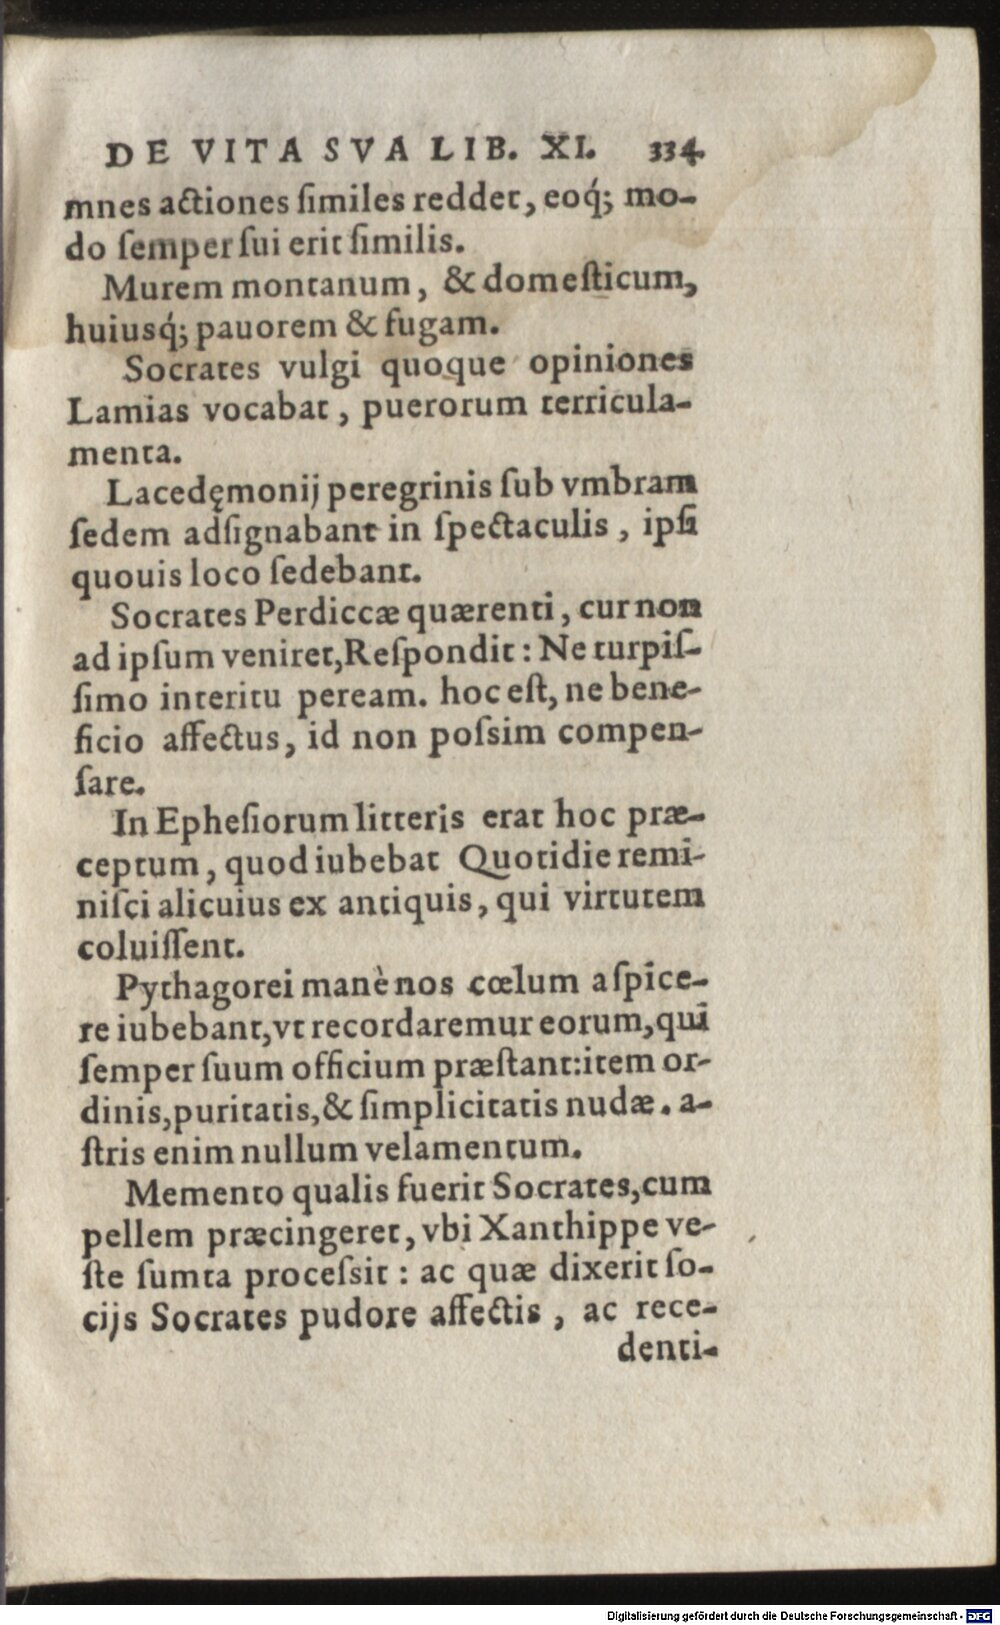 DE VITA SVA LIB. XI. 334
mnes actiones ſimiles reddet, eoq́; mo-
do ſemper ſui erit ſimilis.
Murem montanum, & domeſticum,
huiusq́; pauorem & fugam.
Socrates vulgi quoque opiniones
Lamias vocabat, puerorum terricula-
menta.
Lacedęmonij peregrinis ſub vmbram
ſedem adſignabant in ſpectaculis, ipſi
quouis loco ſedebant.
Socrates Perdiccæ quærenti, cur non
ad ipſum veniret, Reſpondit: Ne turpiſ-
ſimo interitu peream. hoc eſt, ne bene-
ficio affectus, id non poſsim compen-
ſare.
In Epheſiorum litteris erat hoc præ-
ceptum, quod iubebat Quotidie remi-
niſci alicuius ex antiquis, qui virtutem
coluiſſent.
Pythagorei manè nos cœlum aſpice-
re iubebant, vt recordaremur eorum, qui
ſemper ſuum officium præſtant: item or-
dinis, puritatis, & ſimplicitatis nudæ. a-
ſtris enim nullum velamentum.
Memento qualis fuerit Socrates, cum
pellem præcingeret, vbi Xanthippe ve-
ſte ſumta proceſsit: ac quæ dixerit ſo-
cijs Socrates pudore affectis, ac rece-
denti-
Digitalisierung gefördert durch die Deutsche Forschungsgemeinschaft - DFG